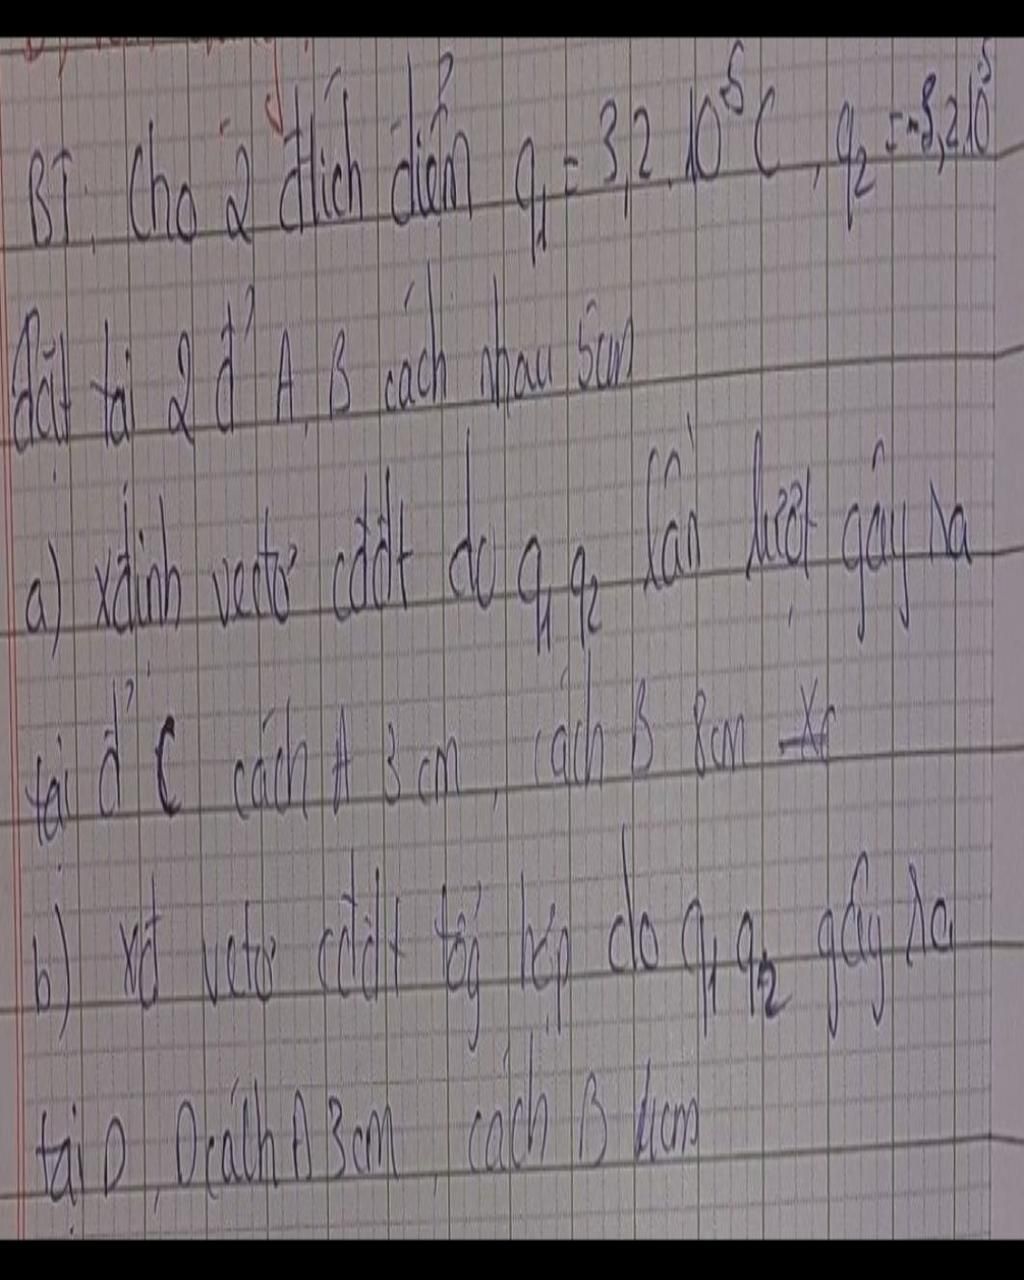 BT: Cho 2 đtích điểm q₁ = 3,2.10⁻⁵C, q₂ = -3,2.10⁻⁵
đặt tại 2 đ' A, B cách nhau 5cm
a) xđịnh vectơ cđđt do q₁ q₂ lần lượt gây ra
tại đ' C cách A 3cm, cách B 8cm
b) xđ vectơ cđđt tổg hợp do q₁ q₂ gây ra
tại D, D cách A 3cm, cách B 4cm